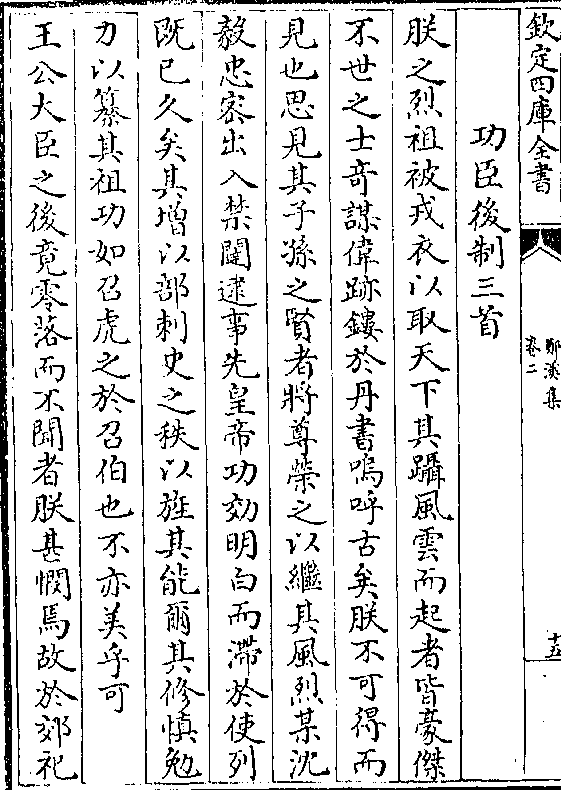 欽定四庫全書
鄖溪集
卷二
十五
功臣後制三首
朕之烈祖被戎衣以取天下其躡風雲而起者皆豪傑
不世之士竒謀偉跡鏤於丹書嗚呼古矣朕不可得而
見也思見其子孫之賢者將尊榮之以繼其風烈某沈
毅忠宻出入禁闥逮事先皇帝功効明白而滯於使列
既已久矣其增以部刺史之秩以旌其能爾其修慎勉
力以纂其祖功如召虎之於召伯也不亦美乎可
王公大臣之後竟零落而不聞者朕甚憫焉故於郊祀